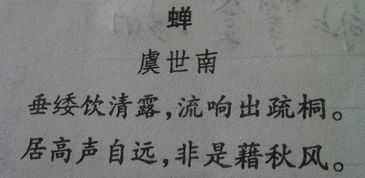 蝉
虞世南
垂緌饮清露,流响出疏桐。
居高声自远,非是藉秋风。